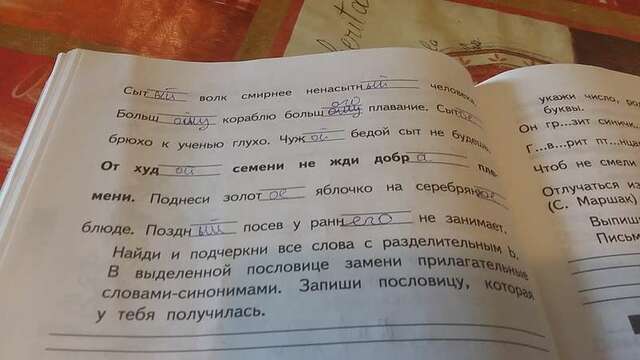 Сытый волк смирнее ненасытный человека
Большому кораблю большого плавание. Сыт
брюхо к ученью глухо. Чужой бедой сыт не будешь
От худой семени не жди добра пле-
мени. Поднеси золотое яблочко на серебряное
блюде. Поздный посев у раннего не занимает.
Найди и подчеркни все слова с разделительным ь.
В выделенной пословице замени прилагательные
словами-синонимами. Запиши пословицу, которая
у тебя получилась.
укажи число, ро
буквы.
Он гр...зит синичк
Г...в...рит пт...нца
Чтоб не смели
Отлучаться из
(С. Маршак)
Выпиш
Письм